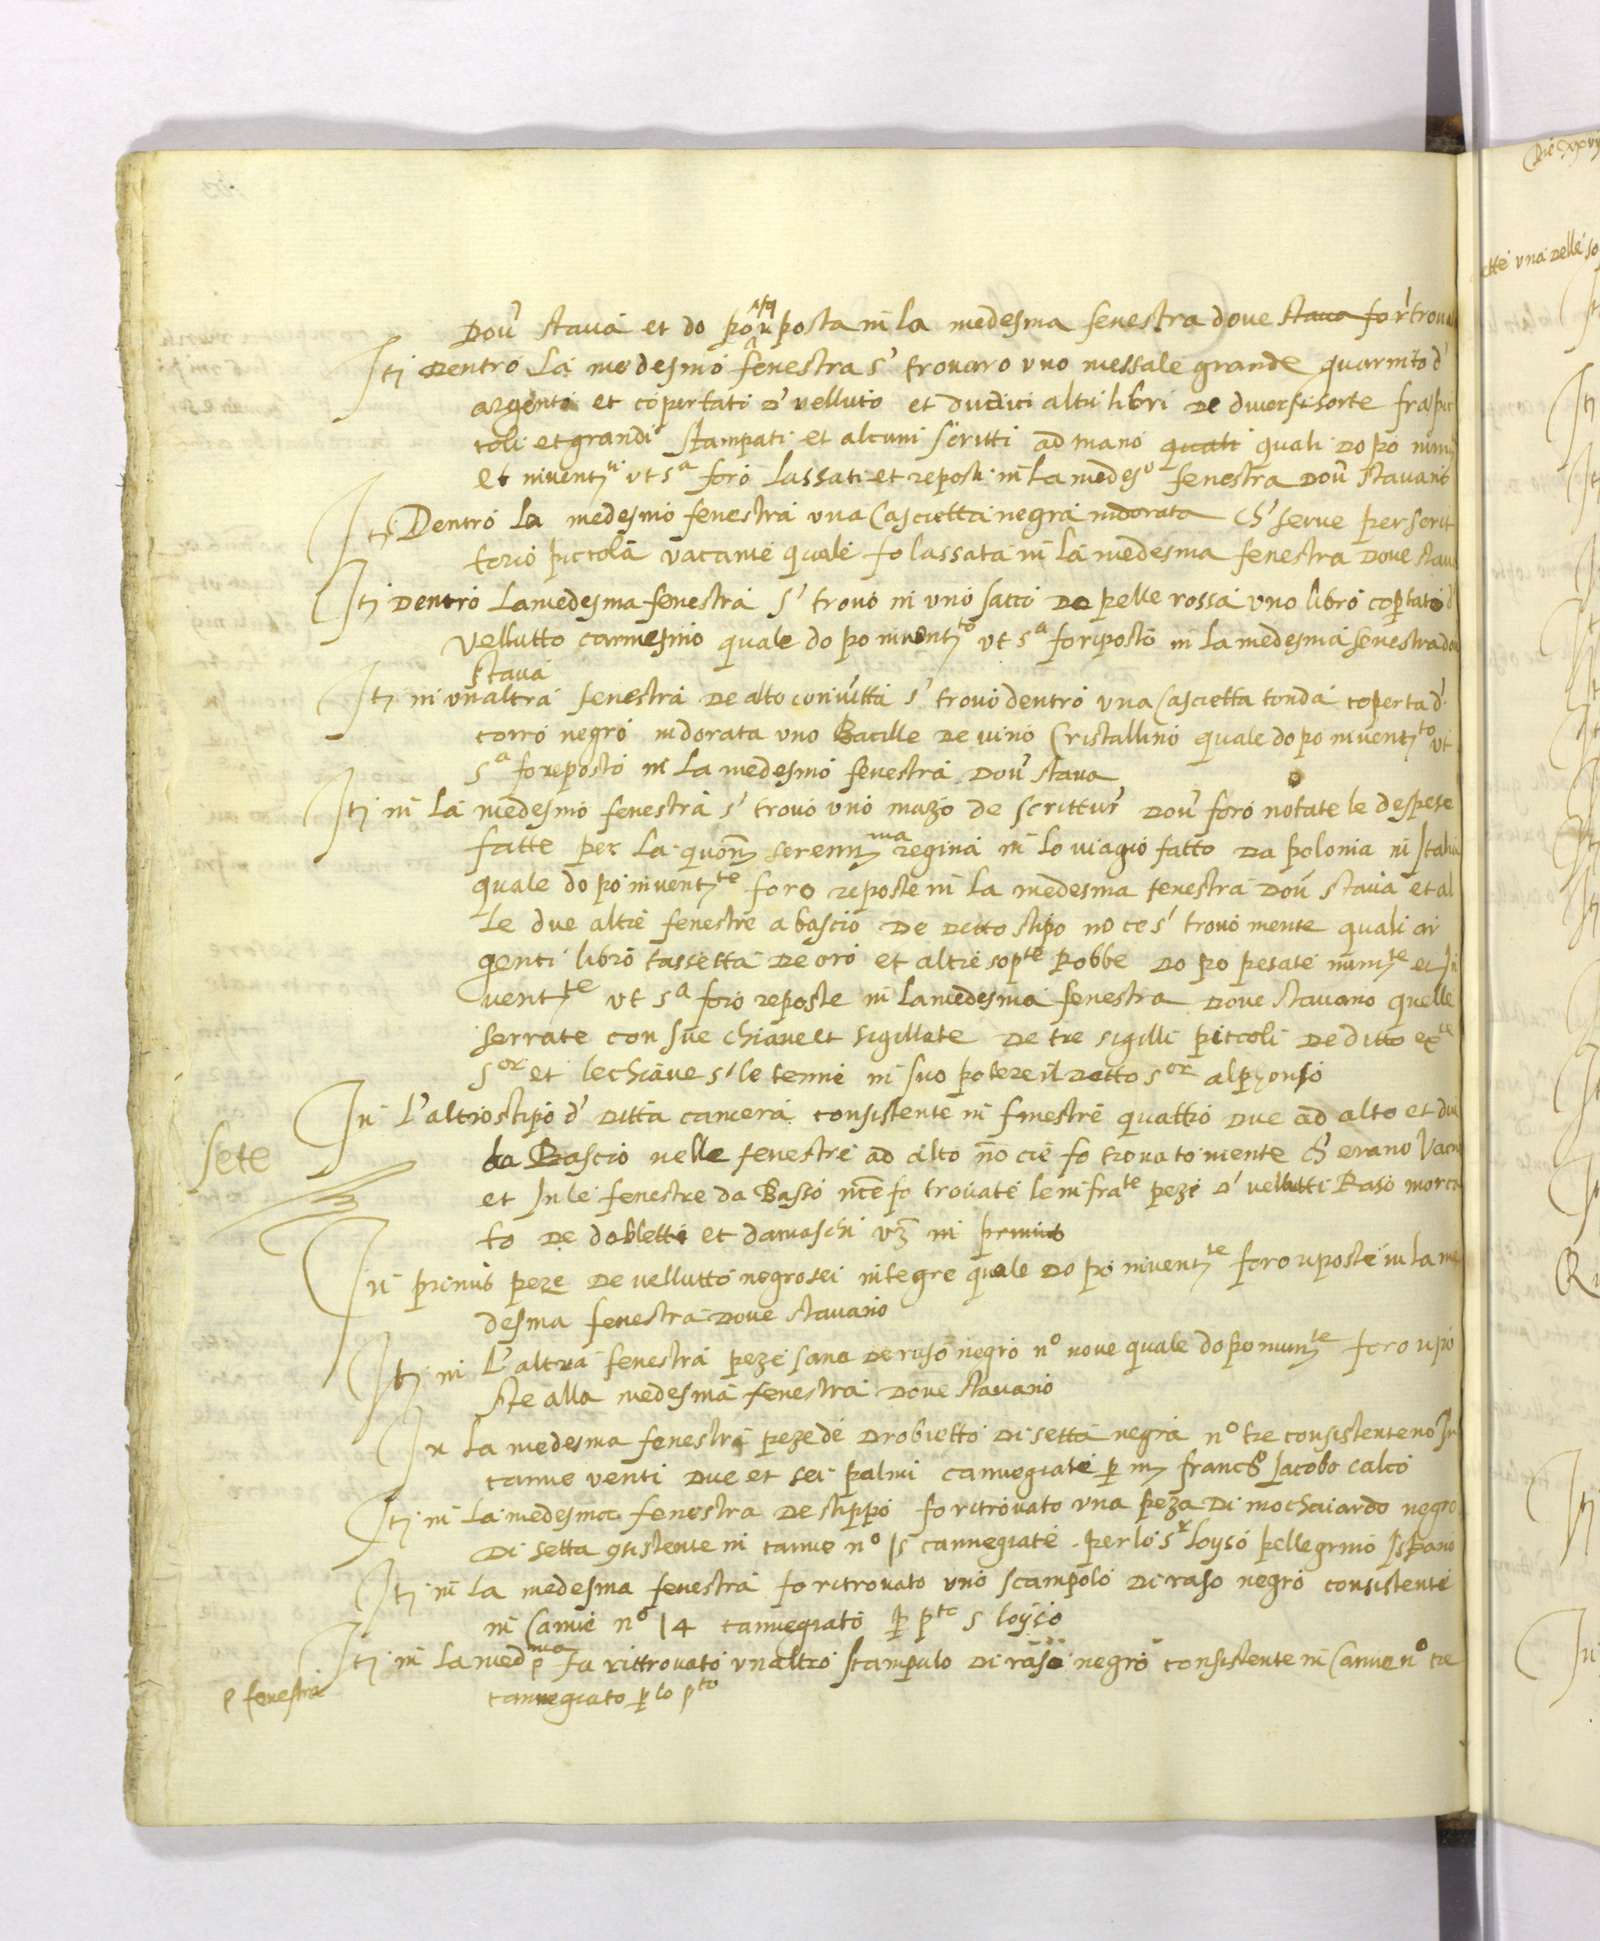 Dove stava et do po riposta in la medesma fenestra dove stava fo ritrova
Itj Dentro la medesmo fenestra s' trovaro uno messale grande guarnito d'
argento et copertati d' velluto et dudici altri libri de diversi sorte fra pic
coli et grandi stampati et alcuni scritti ad mano quali quali do po num
et inventti ut sa foro lassati et reposti in la medeso fenestra Dove stavano
Itj Dentro la medesmo fenestra una Cascietta negra indorata ch' serve per scrit
torio piccola vacante quale fo lassata in la medesma fenestra dove stava
Itj Dentro la medesma fenestra s' trovo in uno sacco de pelle rossa uno libro copertato d'
vellutto carmesino quale do po inventto ut sa fo riposto in la medesma fenestra dove
stava
Itj in un altra fenestra de alto s' trovo dentro una Cascietta tonda coperta d'
corro negro indorata uno Bacille de vino Cristallino quale do po inventto ut
sa fo reposto in la medesmo fenestra Dove stava
Itj in la medesmo fenestra s' trovo uno mazo de scritture Dove foro notate le despese
fatte per la quonm serenmma regina in lo viagio fatto da polonia in Italia
quale do po inventte foro reposte in la medesma fenestra Dove stava et al
le due altre fenestre a bascio de detto stipo no ce s' trovo niente quali ar
genti libro tassetta de oro et altre sopte Robbe do po pesate numte et In
ventte ut sa foro reposte in la medesma fenestra Dove stavano quelle
serrate con sue chiave et sigillate de tre sigilli piccoli de ditto exte
sor et le chiave s' le tenne in suo potere il detto sor alphonso
In l'altro stipo d' ditta camera consistente in fenestre quattro due ad alto et due
Sete
da Bascio nelle fenestre ad alto no cie fo trovato niente ch' erano vacue
et In le fenestre da Basso nce fo trovate le infrate peze d' vellutti Raso morca
to de dobletti et damaschi vz in primis
In primis peze de vellutto negro sei integre quale do po inventte foro riposte in la me
desma fenestra Dove stavano
Itj in l'altra fenestra peze sana de raso negro no nove quale do po numte foro ripo
ste alla medesma fenestra Dove stavano
In la medesma fenestra peze de Drobietto di setta negra no tre consisteneno In
canne venti due et sei palmi cannegiate p m francco Jacobo calco
Itj in la medesma fenestra de stippo fo ritrovato una peza di mochaiardo negro
di setta consistente in canne no 15 cannegiate per lo sr Loyso pellegrino Ispano
Itj in la medesma fenestra fo ritrovato uno scampolo di raso negro consistente
in Canne no 14 cannegiato p pto s loyso
Itj in la medma fa rittrovato un altro scampulo di raso negro consistente in Canne no tre
p fenestra
cannegiato p lo pto